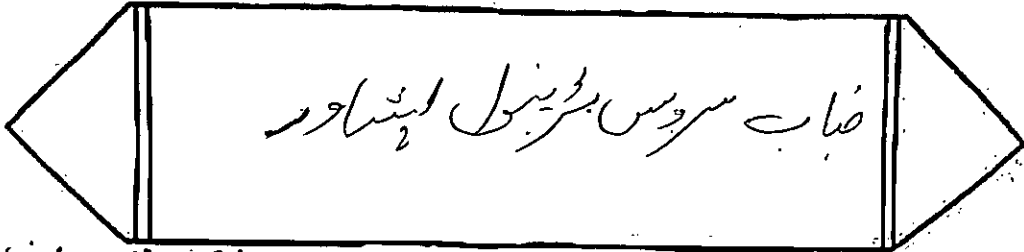 جناب سروس ٹریبونل پشاور